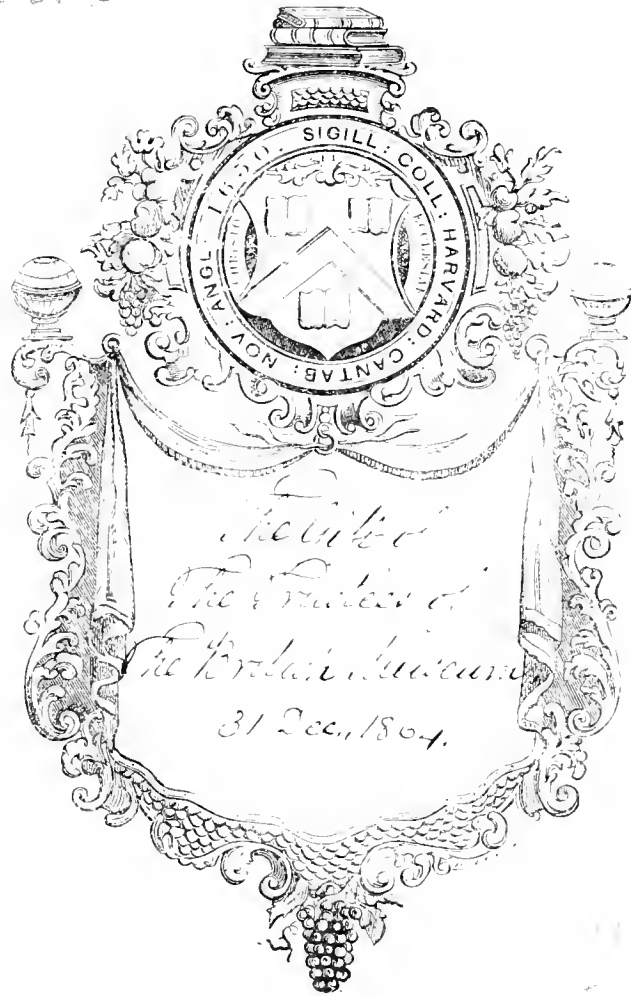 SIGILL: COLL: HARVARD: CANTAB: NOV: ANGL: 1650.
The Gift of
The Trustees of
The British Museum
31 Dec., 1864.